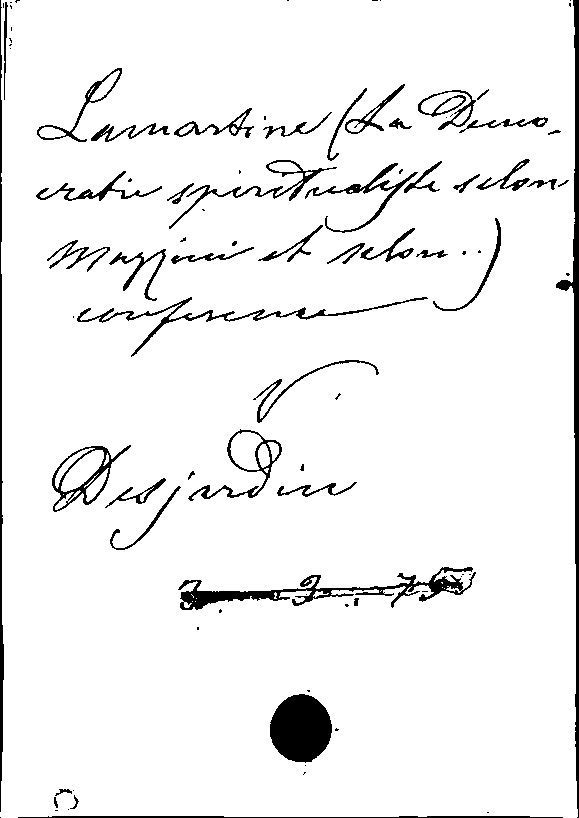 Lamartine (La Démo-
cratie spiritualiste selon
Mazzini et selon..)
conference
V.
Desjardin